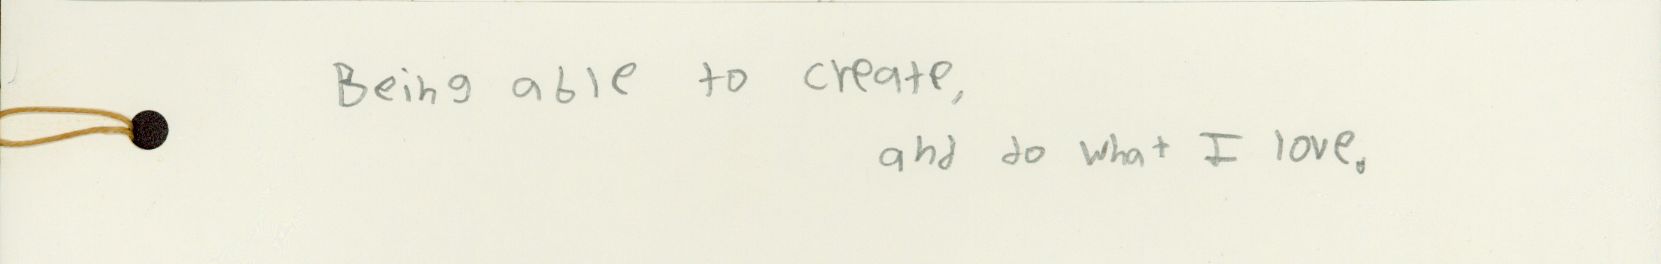 Being able to create,
and do what I love.